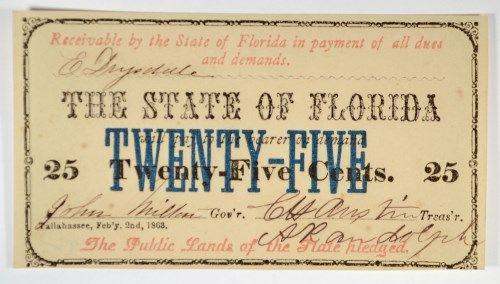 Receivable by the State of Florida in payment of all dues
and demands.
C Drysdale
THE STATE OF FLORIDA
will pay to the bearer on demand
TWENTY-FIVE
25 Twenty-Five Cents. 25
John Milton Gov'r. C H Austin Treas'r.
Tallahassee, Feb'y. 2nd, 1863.
The Public Lands of the State pledged.